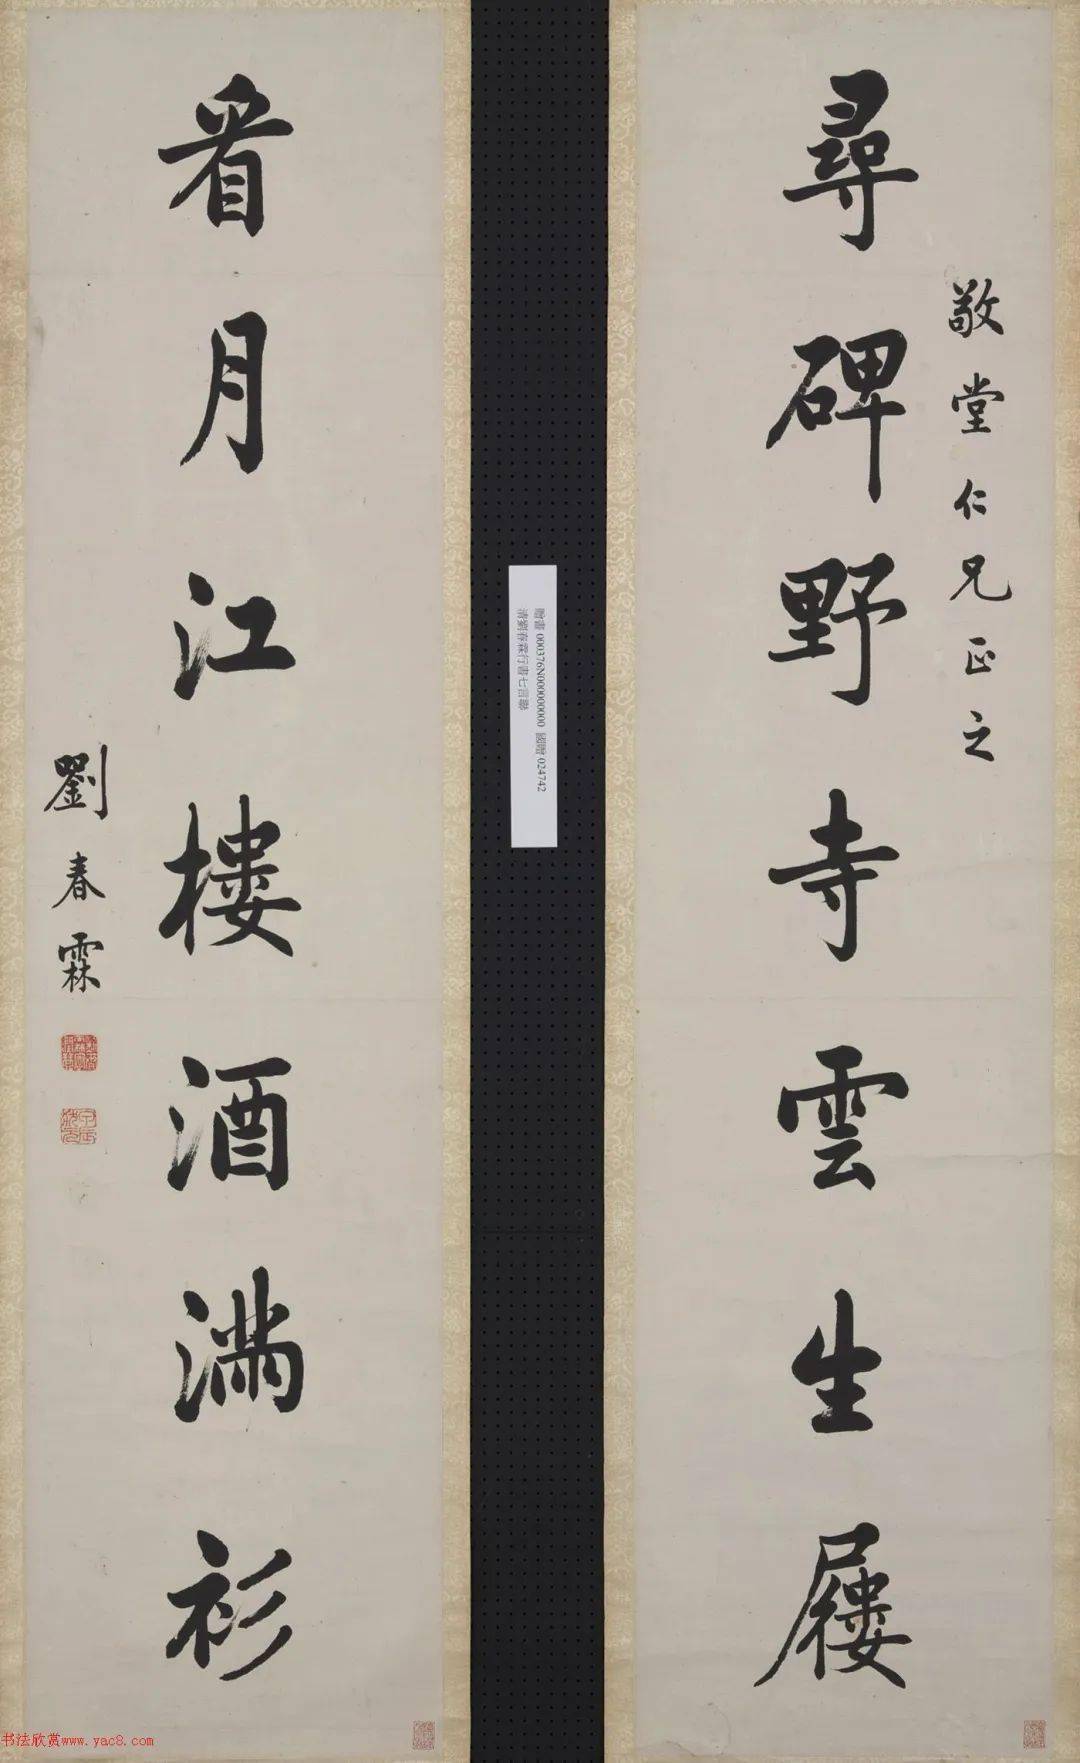 尋碑野寺雲生屨
敬堂仁兄正之
看月江樓酒滿衫
劉春霖
贈書 000376N000000000 國贈 024742
清劉春霖行書七言聯
书法欣赏www.yac8.com